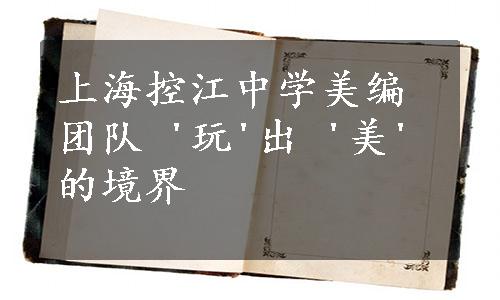 上海控江中学美编
团队 '玩'出 '美'
的境界